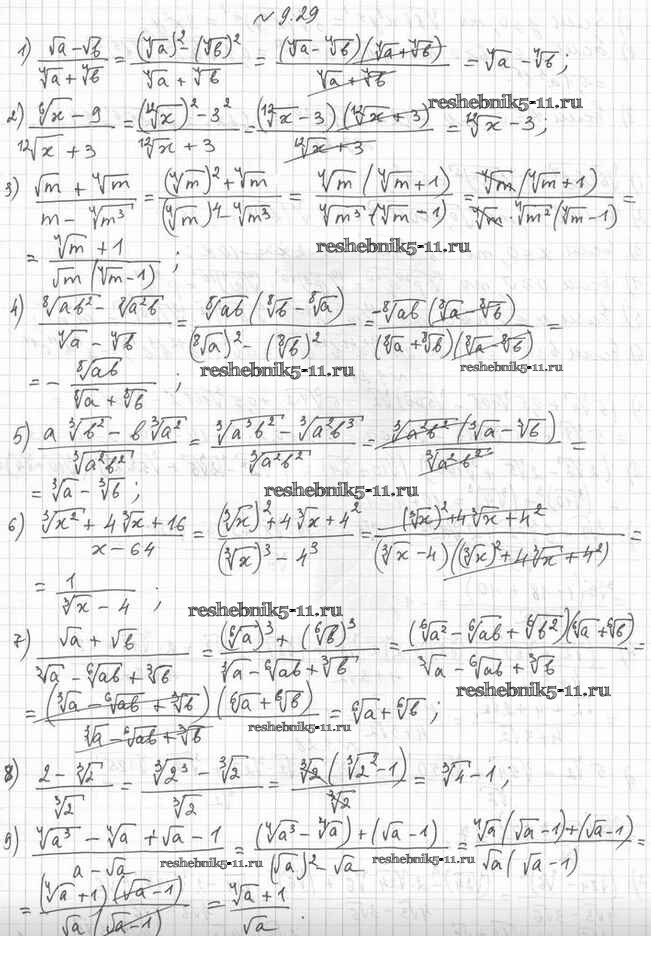 № 9.29
1) (√a − √b)/(⁴√a + ⁴√b) = ((⁴√a)² − (⁴√b)²)/(⁴√a + ⁴√b) = ((⁴√a − ⁴√b)(⁴√a + ⁴√b))/(⁴√a + ⁴√b) = ⁴√a − ⁴√b;
reshebnik5-11.ru
2) (⁶√x − 9)/(¹²√x + 3) = ((¹²√x)² − 3²)/(¹²√x + 3) = ((¹²√x − 3)(¹²√x + 3))/(¹²√x + 3) = ¹²√x − 3;
3) (√m + ⁴√m)/(m − ⁴√m³) = ((⁴√m)² + ⁴√m)/((⁴√m)⁴ − ⁴√m³) = (⁴√m (⁴√m + 1))/(⁴√m³ · (⁴√m − 1)) = (⁴√m (⁴√m + 1))/(⁴√m · ⁴√m² (⁴√m − 1)) =
reshebnik5-11.ru
= (⁴√m + 1)/(√m (⁴√m − 1));
4) (⁸√ab² − ⁸√a²b)/(⁴√a − ⁴√b) = (⁸√ab (⁸√b − ⁸√a))/((⁸√a)² − (⁸√b)²) = (−⁸√ab (⁸√a − ⁸√b))/((⁸√a + ⁸√b)(⁸√a − ⁸√b)) =
reshebnik5-11.ru reshebnik5-11.ru
= − ⁸√ab/(⁸√a + ⁸√b);
5) (a ³√b² − b ³√a²)/(³√a²b²) = (³√a³b² − ³√a²b³)/(³√a²b²) = (³√a²b² (³√a − ³√b))/(³√a²b²) =
= ³√a − ³√b;
reshebnik5-11.ru
6) (³√x² + 4 ³√x + 16)/(x − 64) = ((³√x)² + 4 ³√x + 4²)/((³√x)³ − 4³) = ((³√x)² + 4 ³√x + 4²)/((³√x − 4)((³√x)² + 4 ³√x + 4²)) =
= 1/(³√x − 4);
reshebnik5-11.ru
7) (√a + √b)/(³√a − ⁶√ab + ³√b) = ((⁶√a)³ + (⁶√b)³)/(³√a − ⁶√ab + ³√b) = ((⁶√a² − ⁶√ab + ⁶√b²)(⁶√a + ⁶√b))/(³√a − ⁶√ab + ³√b) =
reshebnik5-11.ru
= ((³√a − ⁶√ab + ³√b)(⁶√a + ⁶√b))/(³√a − ⁶√ab + ³√b) = ⁶√a + ⁶√b;
reshebnik5-11.ru
8) (2 − ³√2)/(³√2) = (³√2³ − ³√2)/(³√2) = (³√2 (³√2² − 1))/(³√2) = ³√4 − 1;
9) (⁴√a³ − ⁴√a + √a − 1)/(a − √a) = ((⁴√a³ − ⁴√a) + (√a − 1))/((√a)² − √a) = (⁴√a (√a − 1) + (√a − 1))/(√a (√a − 1)) =
reshebnik5-11.ru reshebnik5-11.ru
= ((⁴√a + 1)(√a − 1))/(√a (√a − 1)) = (⁴√a + 1)/√a.